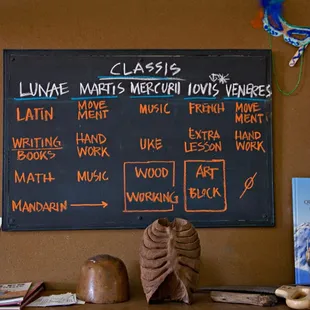 CLASSIS
LUNAE MARTIS MERCURII IOVIS VENERES
LATIN MOVE MENT MUSIC FRENCH MOVE MENT
WRITING BOOKS HAND WORK UKE EXTRA LESSON HAND WORK
MATH MUSIC WOOD WORKING ART BLOCK Ø
MANDARIN →